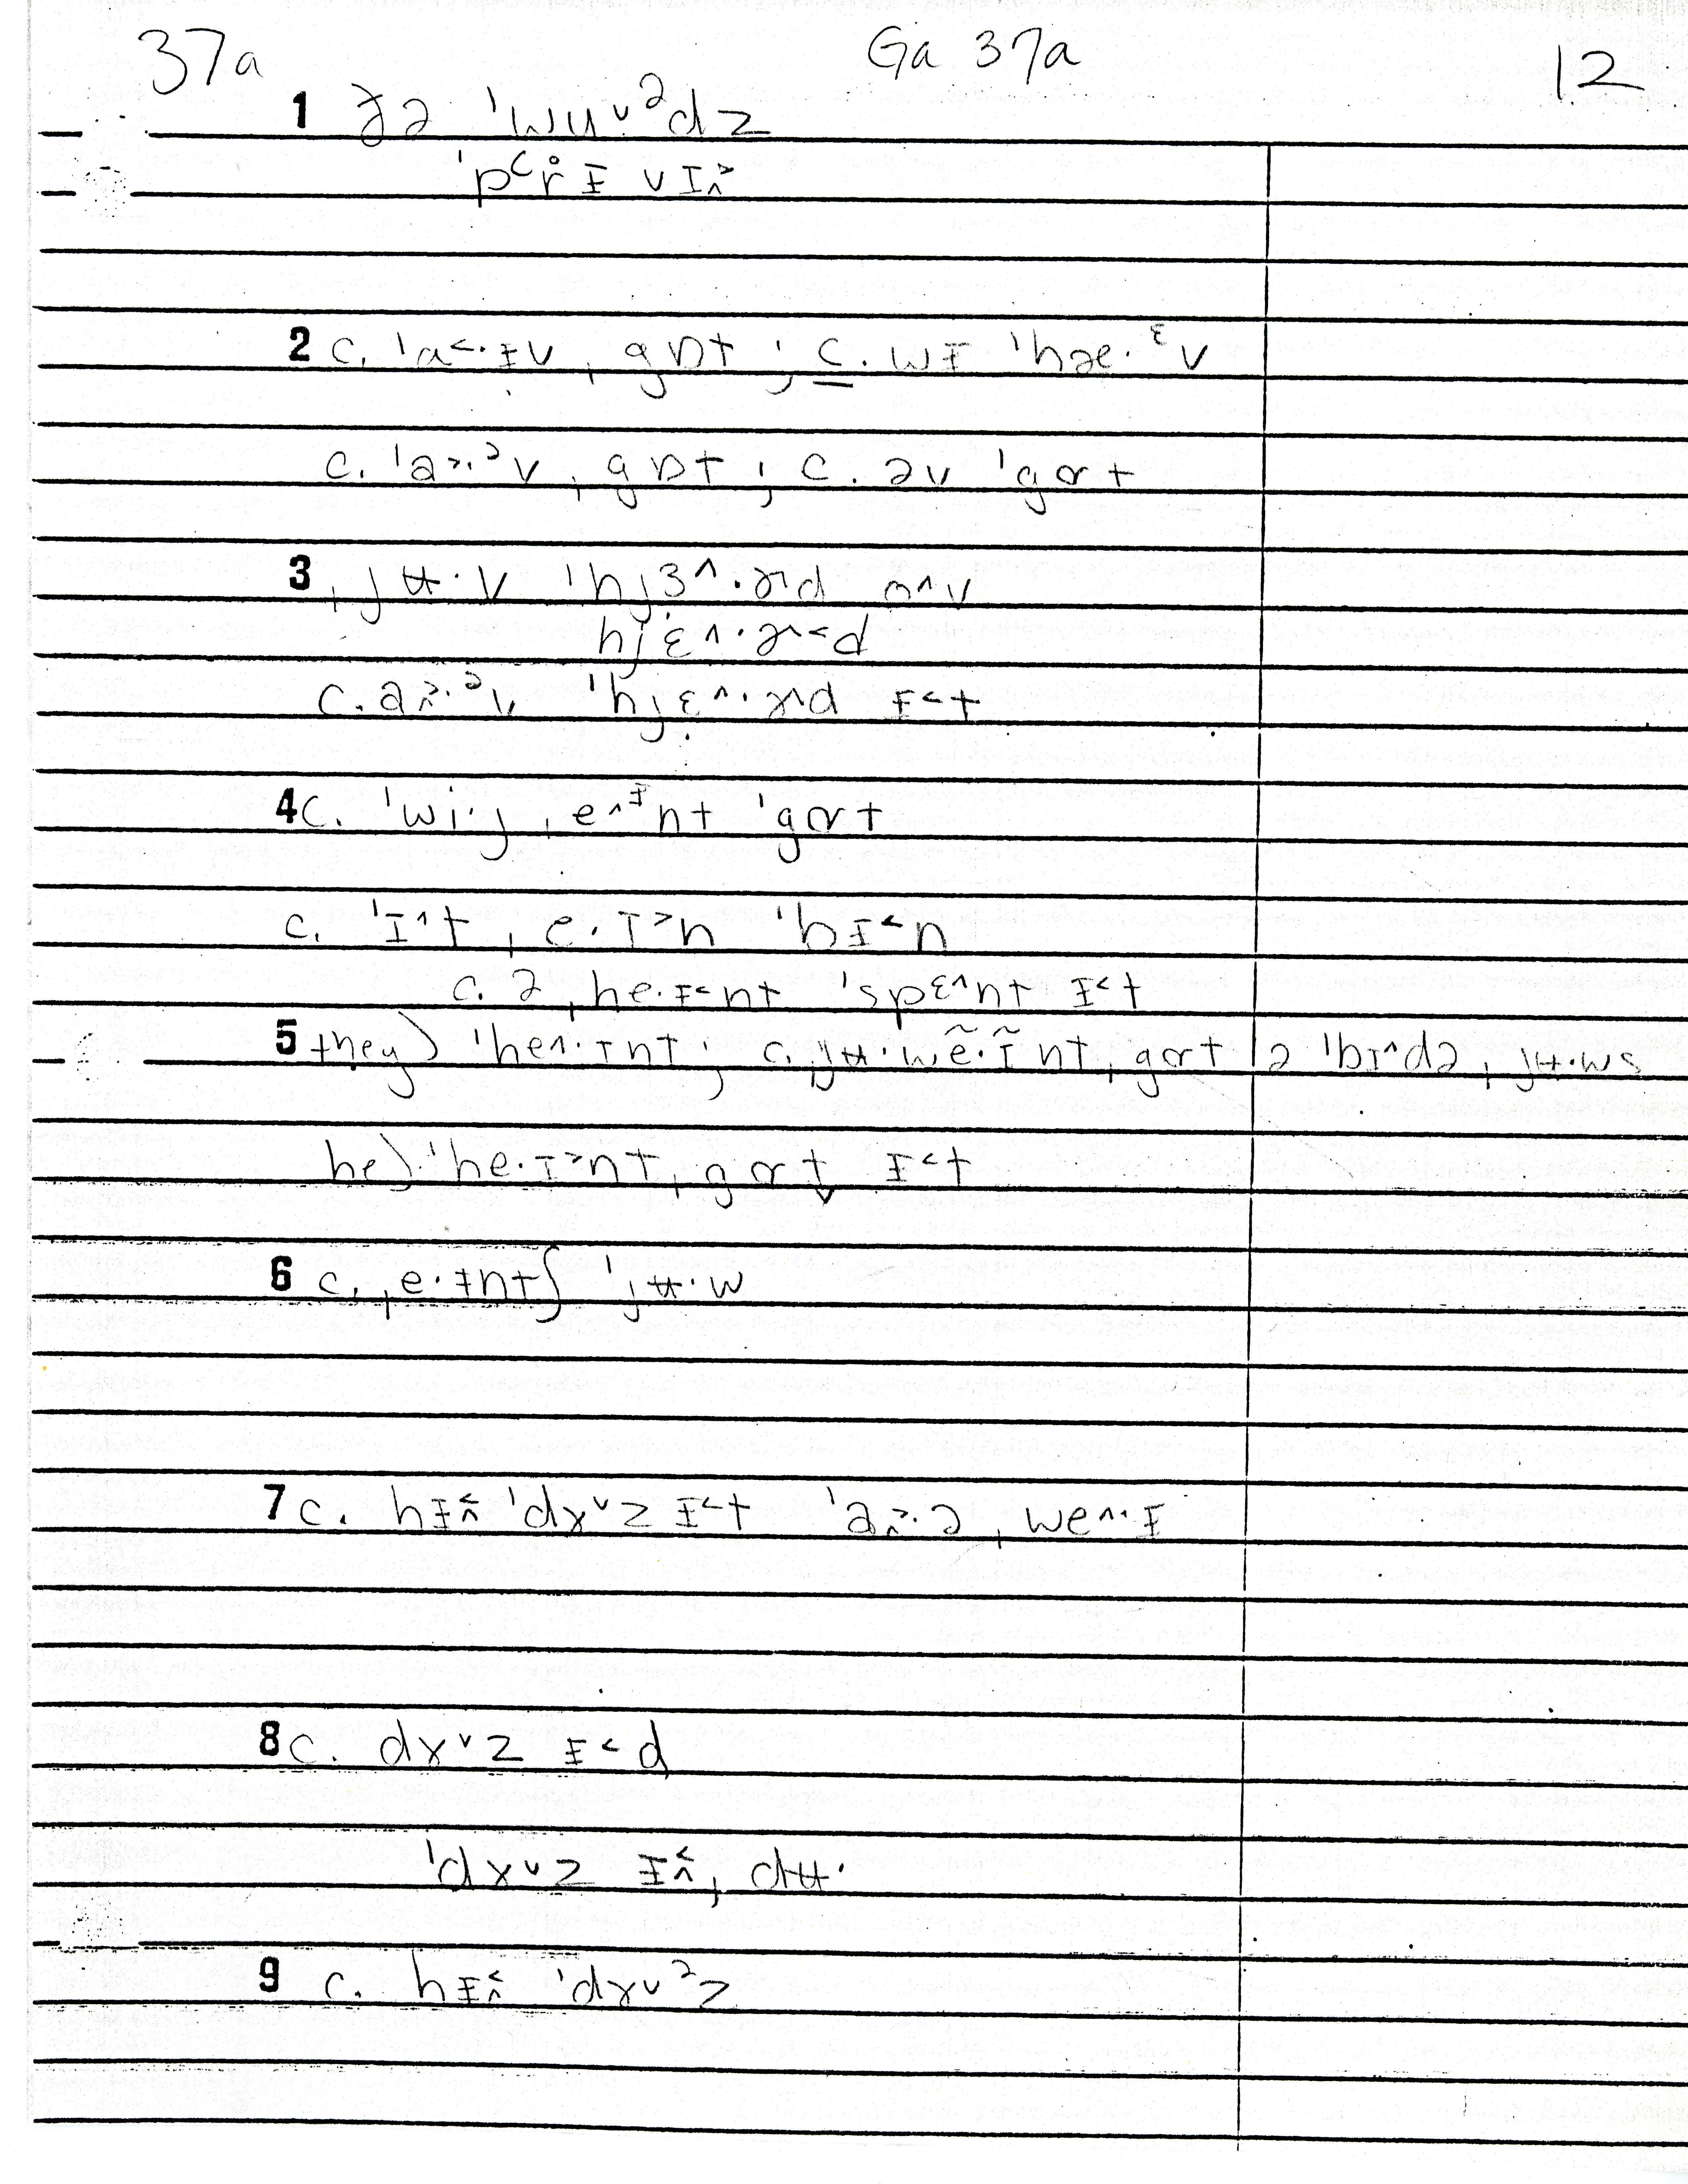 37a Ga 37a 12
1 ðə ˈwuᵛᵊdz
ˈpʻr̥ɨ vɪ^>
2 c. ˈa<·ɨv ˌgɒt ; c. wɨ ˈhæ·ᵋv
c. ˈa>·ᵊv ˌgɒt ; c. əv ˈgɑt
3 ˌjʉ·v ˈhjɜ^·ɚd ən v
hjɛ^·ɚ<d
c. a>·ᵊv ˈhjɛ^·ɚd ɨ<t
4 c. ˈwi·j ˌe^ᶤnt ˈgɑt
c. ˈɪ^t ˌe·ɪ>n ˈbɨ<n
c. ə ˌhe·ɨ<nt ˈspɛ^nt ɨ<t
5 they) ˈhe^·ɪnt ; c. jʉ·wẽ·ɪ̃nt ˌgɑt ə ˈbɪ^də ˌjʉ·ws
he) ˈhe·ɪ>nt ˌgɑt̬ ɨ<t
6 c. ˌe·ɨntʃ ˈjʉ·w
7 c. hɨ<^ ˈdɤᵛz ɨ<t ˈa>·ə ˌwe^·ɨ
8 c. dɤᵛz ɨ<d
ˈdɤᵛz ɨ<^ ˌdʉ·
9 c. hɨ<^ ˈdɤᵛᵊz